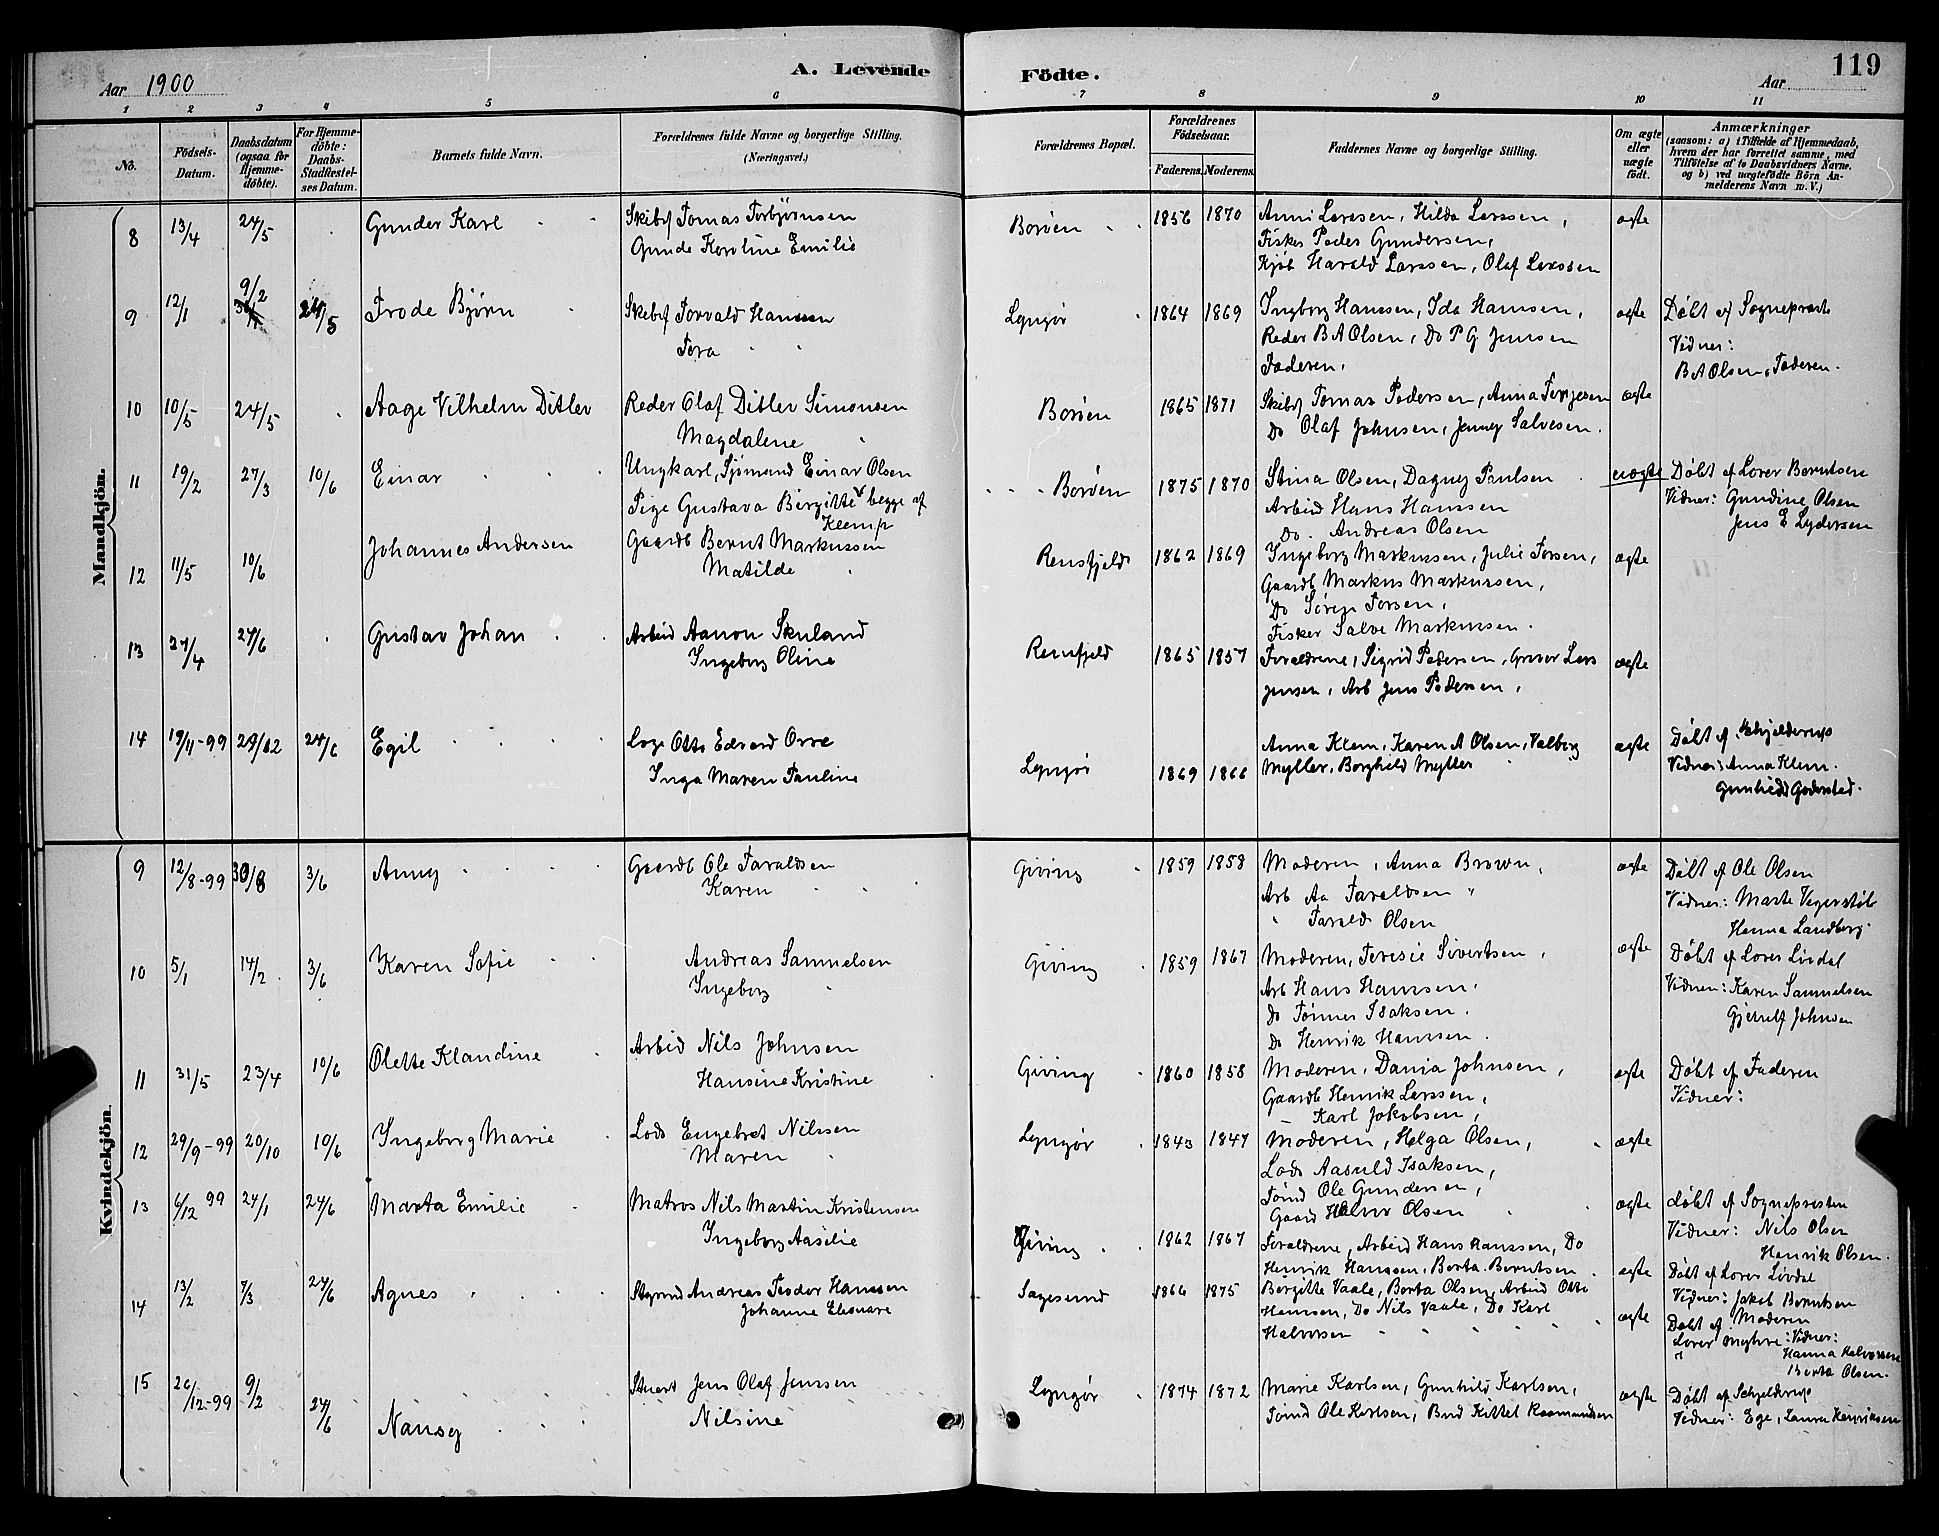 119
Aar 1900
A. Levende
Födte.
Aar
1 2 3 4 5 6 7 8 9 10 11
No.
Födsels-Datum.
Daabsdatum (ogsaa for Hjemme-döbte).
For Hjemme-döbte: Daabs-Stadfæstel-ses Datum.
Barnets fulde Navn.
Forældrenes fulde Navne og borgerlige Stilling.
(Næringsvei.)
Forældrenes Bopæl.
Forældrenes Födselsaar.
Faderens. Moderens.
Faddernes Navne og borgerlige Stilling.
Om ægte eller uægte födt.
Anmærkninger
(saasom: a) i Tilfælde af Hjemmedaab, hvem der har forrettet samme, med Tilföielse af to Daabsvidners Navne. og b) ved uægtefödte Börn An-melderens Navn m. V.)
Mandkjön.
8 13/4 24/5 Gunder Karl Skibsf Tomas Torbjørnsen Borøen 1856 1870 Anni Larssen, Hilda Larssen, ægte
Gunda Karoline Emilie Fisker Peder Gundersen,
Kjøb Harald Larssen, Olaf Larssen
9 12/1 9/2 24/5 Frode Bjørn Skibsf Torvald Hanssen Lyngør 1864 1869 Ingborg Hanssen, Ida Hanssen, ægte Døbt af Sogneprest
Tora Reder B A Olsen, Do P G Jensen Vidner:
Faderen. B A Olsen, Faderen.
10 10/5 24/5 Aage Vilhelm Ditlev Reder Olaf Ditlev Simonsen Borøen 1865 1871 Skibsf Tomas Pedersen, Anna Terjesen ægte
Magdalene Do Olaf Johnsen, Jenny Salvesen.
11 19/2 27/3 10/6 Einar Ungkarl, Sjømand Einar Olsen Borøen 1875 1870 Stina Olsen, Dagny Paulsen uægte Døbt af Lærer Berntsen
Pige Gustava Birgitte begge af Klemp Arbeid Hans Hanssen Vidner: Gundine Olsen
Do. Andreas Olsen Jens E Lydersen
12 11/5 10/6 Johannes Andersen Gaardb Bernt Markussen Rensfjeld 1862 1869 Ingeborg Markussen, Julie Torsen, ægte
Matilde Gaardb Markus Markussen,
Do Søren Torsen,
Fisker Salve Markussen.
13 27/4 24/6 Gustav Johan Arbeid Aanon Skuland Rensfjeld 1865 1857 Forældrene, Sigrid Pedersen, Graver Lars ægte
Ingeborg Oline Jensen, Arb Jens Pedersen,
14 19/11-99 29/12 24/6 Egil Logs Otto Edvard Orre Lyngør 1869 1866 Anna Klem, Karen A Olsen, Valborg ægte Døbt af Schjelderup
Inga Maren Pauline Myller, Borghild Myller Vidner: Anna Klem.
Gunhild
Kvindekjön.
9 12/8-99 30/8 3/6 Anny Gaardb Ole Taraldsen Giving 1859 1858 Moderen, Anna Brown, ægte Døbt af Ole Olsen
Karen Arb Aa Taraldsen " Vidner: Marte Vegerstøl
" Tarald Olsen Hanna Landberg.
10 5/1 14/2 3/6 Karen Sofie Andreas Samuelsen Giving 1859 1867 Moderen, Teresie Sivertsen, ægte Døbt af Lærer Livdal
Ingeborg Arb Hans Hanssen. Vidner: Karen Samuelsen
Do Tønnes Isaksen. Johnsen
Do Henrik Hanssen.
11 31/5 23/4 10/6 Olette Klandine Arbeid Nils Johnsen Giving 1860 1858 Moderen, Dania Johnsen, ægte Døbt af Faderen
Hansine Kristine Gaardb Henrik Larssen, Vidner:
Karl Jakobsen,
12 29/9-99 20/10 10/6 Ingeborg Marie Lods Engebret Nilssen Lyngør 1843 1847 Moderen, Helga Olsen, ægte
Maren Lods Aasuld Isaksen,
Tømd Ole Gundersen,
Gaard Halvor Olsen
13 6/12 99 24/1 24/6 Marta Emilie Matros Nils Martin Kristensen Giving 1862 1867 Forældrene, Arbeid Hans Hanssen, Do ægte døbt af Sognepresten
Ingeborg Aasilie Henrik Hanssen, Berta Berntsen Vidner: Nils Olsen
Henrik Olsen.
14 13/2 7/3 24/6 Agnes Styrmd Andreas Teodor Hanssen Sagesund 1866 1875 Birgitte Vaale, Berta Olsen, Arbeid Otto ægte Døbt af Lærer Livdal
Johanne Elenore Hanssen, Do Nils Vaale, Do Karl Vidner: Jakob Berntsen
Halvorsen ægte Døbt af Moderen
Lærer Myhre: Vidner:
Hanna Halvorsen
Berta Olsen.
15 26/12-99 9/2 24/6 Nansy Stuert Jens Olaf Jenssen Lyngør 1874 1872 Marie Karlsen, Gunhild Karlsen, ægte Døbt af Schjelderup
Nilsine Tømd Ole Karlsen, Bud Kittel Rasmundsen Vidner: Ege, Laura Henriksen